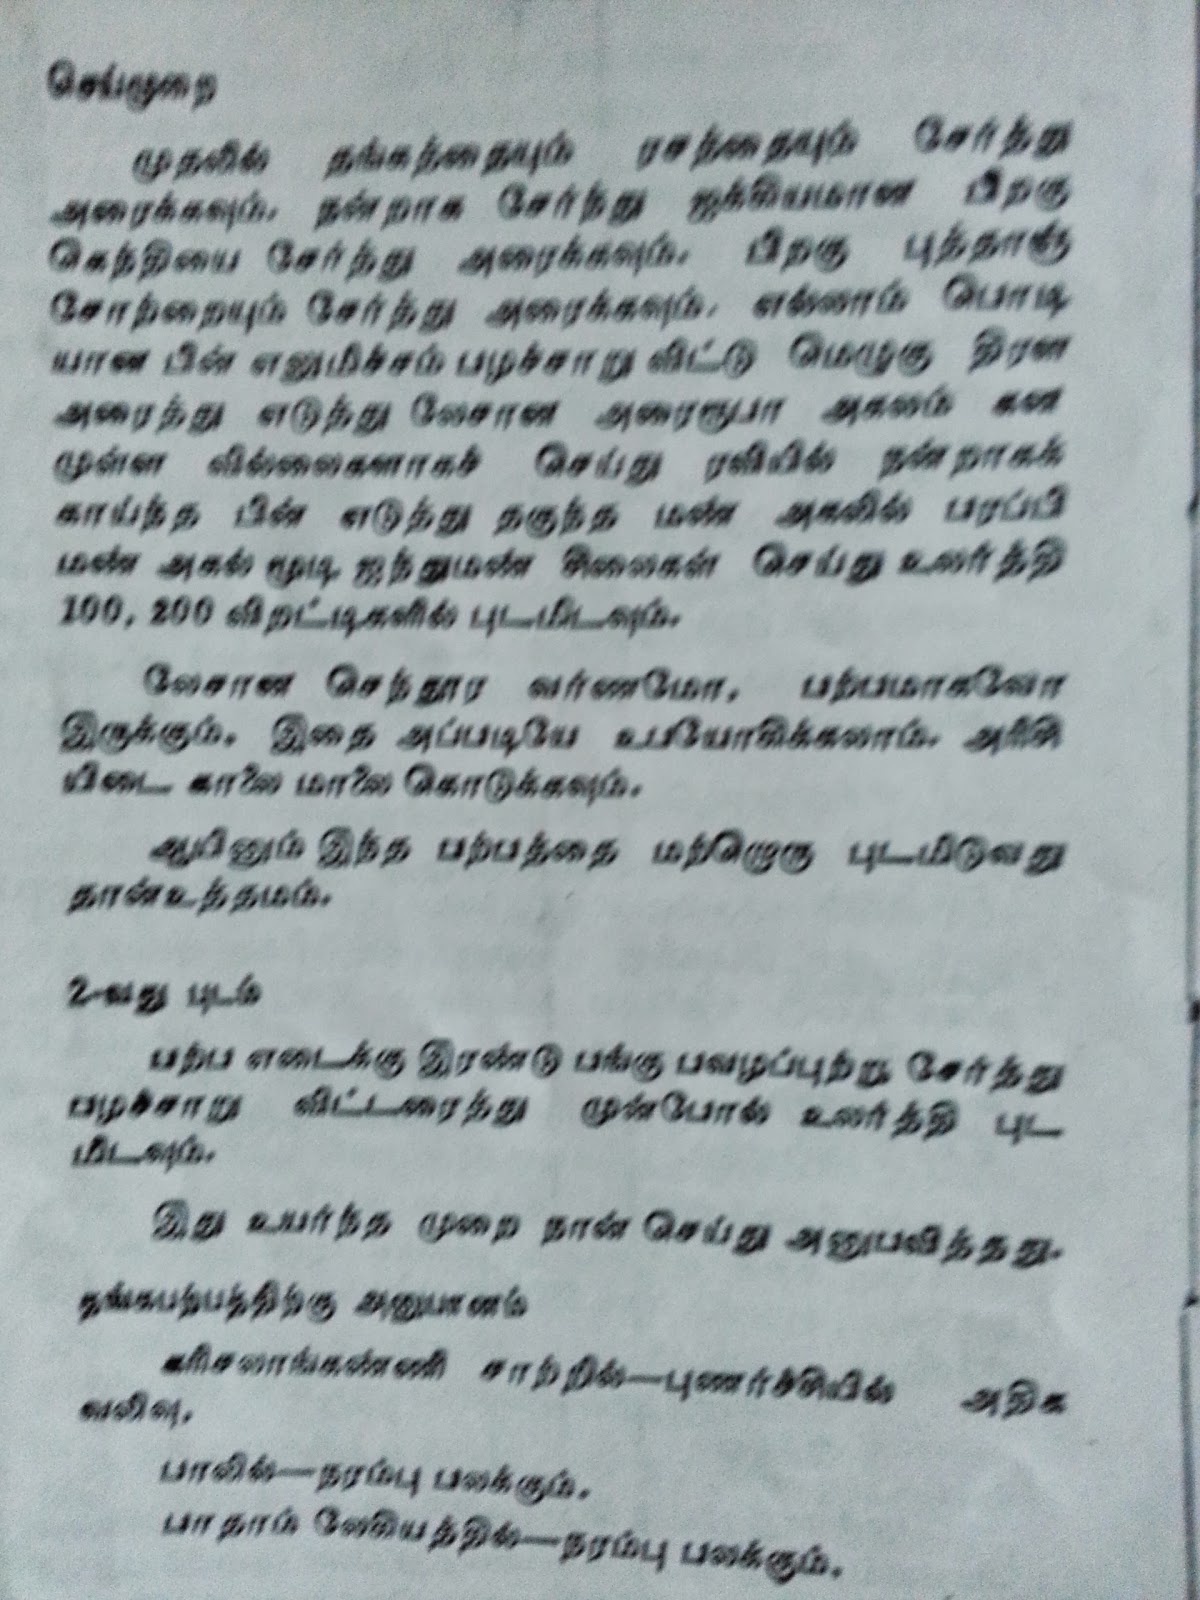 செய்முறை
முதலில் தங்கத்தையும் ரசத்தையும் சேர்த்து
அரைக்கவும். நன்றாக சேர்ந்து ஐக்கியமான பிறகு
கெந்தியை சேர்த்து அரைக்கவும். பிறகு புத்தாஞ்
சோற்றையும் சேர்த்து அரைக்கவும். எல்லாம் பொடி
யான பின் எலுமிச்சம் பழச்சாறு விட்டு மெழுகு திரள
அரைத்து எடுத்து லேசான அரைரூபா அகலம் கன
முள்ள வில்லைகளாகச் செய்து ரவியில் நன்றாகக்
காய்ந்த பின் எடுத்து தகுந்த மண் அகலில் பரப்பி
மண் அகல் மூடி ஐந்துமண் சீலைகள் செய்து உலர்த்தி
100, 200 விறட்டிகளில் புடமிடவும்.
லேசான செந்தூர வர்ணமோ, பற்பமாகவோ
இருக்கும். இதை அப்படியே உபயோகிக்கலாம். அரிசி
யிடை காலை மாலை கொடுக்கவும்.
ஆயினும் இந்த பற்பத்தை மற்றொரு புடமிடுவது
தான் உத்தமம்.
2-வது புடம்
பற்ப எடைக்கு இரண்டு பங்கு பவழப்புற்று சேர்த்து
பழச்சாறு விட்டரைத்து முன்போல் உலர்த்தி புட
மிடவும்.
இது உயர்ந்த முறை நான் செய்து அனுபவித்தது.
தங்கபற்பத்திற்கு அனுபானம்
கரிசலாங்கண்ணி சாற்றில்—புணர்ச்சியில் அதிக
வலிவு.
பாலில்—நரம்பு பலக்கும்.
பாதாம் லேகியத்தில்—நரம்பு பலக்கும்.